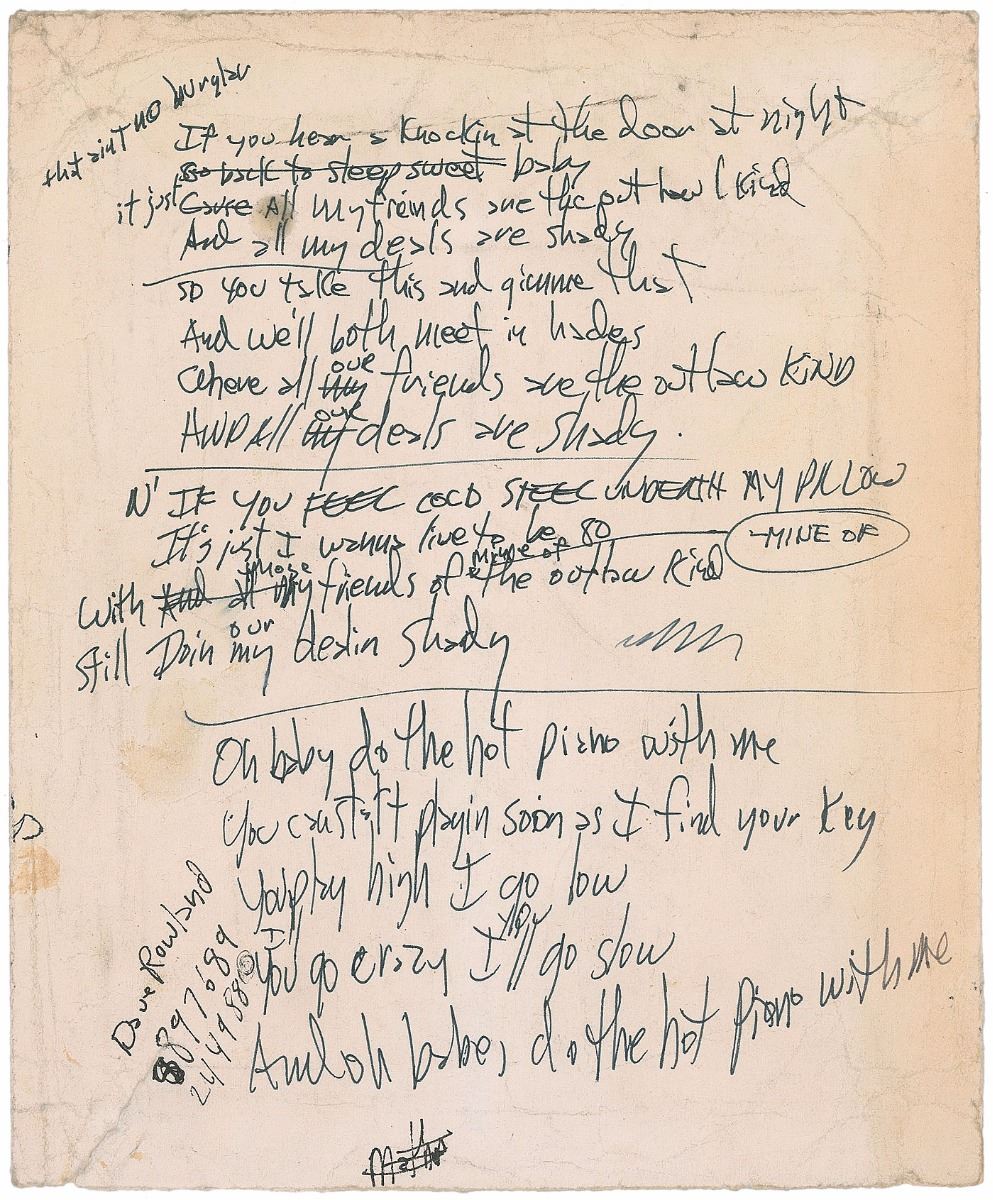 that aint no burglar
If you hear a Knockin at the door at night
Go back to sleep sweet baby
it just Cause All my friends are the outlaw Kind
And all my deals are shady
so you take this and gimme that
And we'll both meet in hades
Where all my our friends are the outlaw KIND
AND All my our deals are shady.
N' IF YOU FEEL COLD STEEL UNDERNEATH MY PILLOW
It's just I wanna live to be 80
-MINE OF
With And all my those friends of mine of the outlaw Kind
Still Doin my our dealin shady
Oh baby do the hot piano with me
You can start playin soon as I find your Key
You play high I go low
You I go crazy I'll you go slow
And oh babe, do the hot piano with me
Dave Rowland
8897689